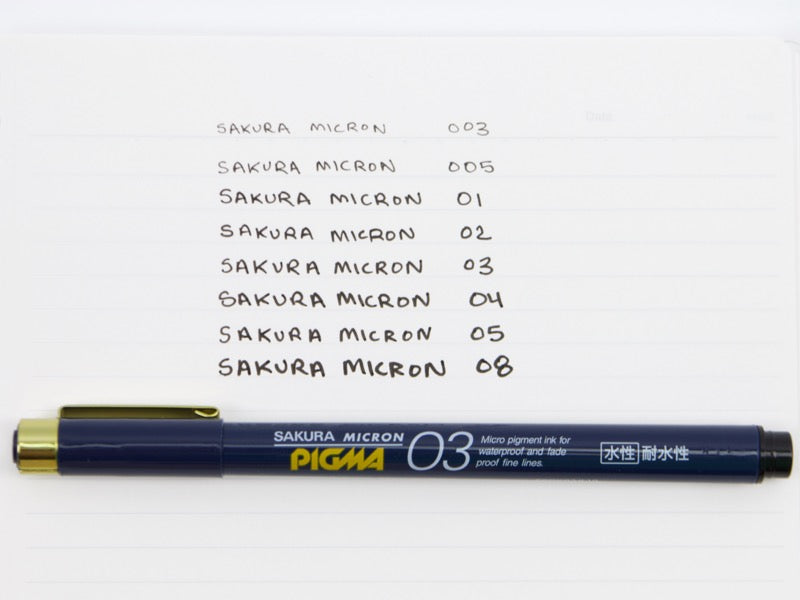 Date
SAKURA MICRON 003
SAKURA MICRON 005
SAKURA MICRON 01
SAKURA MICRON 02
SAKURA MICRON 03
SAKURA MICRON 04
SAKURA MICRON 05
SAKURA MICRON 08
SAKURA MICRON
PIGMA
03
Micro pigment ink for
waterproof and fade
proof fine lines.
水性 耐水性